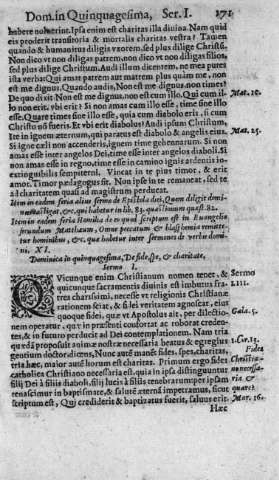 Dom. in Quinquagesima, Ser. I. 271
habere noluerint. Ipsa enim est charitas illa diuina. Nam quid
eis proderit transitoria & mortalis charitas vestra? Tamen
quando & humanitus diligis vxorem, sed plus dilige Christū.
Non dico vt non diligas patrem, non dico vt non diligas filios,
sed plus dilige Christum. Audi illum dicentem, ne mea putes
ista verba: Qui amat patrem aut matrem plus quàm me, non
est me dignus. Quando audis, Non est me dignus, non times?
De quo dixit Non est me dignus, non est cum illo. Qui cum il- Mat. 10.
lo non erit, vbi erit? Si non amas cum illo esse, time sine illo
esse. Quare times sine illo esse, quia cum diabolo erit, si cum
Christo nō fueris. Et vbi erit diabolus? Audi ipsum Christum,
Ite in ignem æternum, qui paratus est diabolo & angelis eius. Mat. 25.
Si igne cæli non accenderis, ignem time gehennarum. Si non
amas esse inter angelos Dei, time esse inter angelos diaboli. Si
non amas esse in regno, time esse in camino ignis ardentis in-
extinguibilis sempiterni. Vincat in te prius timor, & erit
amor. Timor pædagogus sit. Non ipse in te remaneat, sed te
ad charitatem quasi ad magistrum perducat.
Item in eadem feria alius sermo de Epistola dei, Quem diligit domi-
nus castigat, &c. qui habetur in lib. 83. quæst.
Item in eadem feria Homilia de eo quod scriptum est in Euangelio
secundum Matthæum, Omne peccatum & blasphemia remitte-
tur hominibus, &c. quæ habetur inter sermones de verbis domi-
ni. XI.
Dominica in quinquagesima, De fide, spe, & charitate,
Sermo I.
QVicunque enim Christianum nomen tenet, & Sermo
quicunque sacramentis diuinis est imbutus fra- LIII.
tres charissimi, necesse vt religionis Christianæ
rationem sciat, & fidei veritatem agnoscat, eius
quoque fidei, quæ vt Apostolus ait, per dilectio- Gala. 5.
nem operatur, quæ in præsenti confortat ac roborat creden-
tes, & in futuro perducit ad Dei contemplationem. Nam tria
quædā proposuit animæ nostræ necessaria beatus & egregius 1. Cor. 13.
gentium doctor dicens, Nunc autē manēt fides, spes, charitas, Fides
tria hæc, maior autē horum est charitas. Primum ergo fides Christia-
catholica Christiano necessaria est, quia in ipsa distinguuntur necessa-
filij Dei à filijs diaboli, filij lucis à filijs tenebrarum, per ipsam ria &
renascimur in baptismate, & salutē æternā impetramus, sicut quare?
scriptum est, Qui crediderit & baptizatus fuerit, saluus erit. Mar. 16.
Hæc